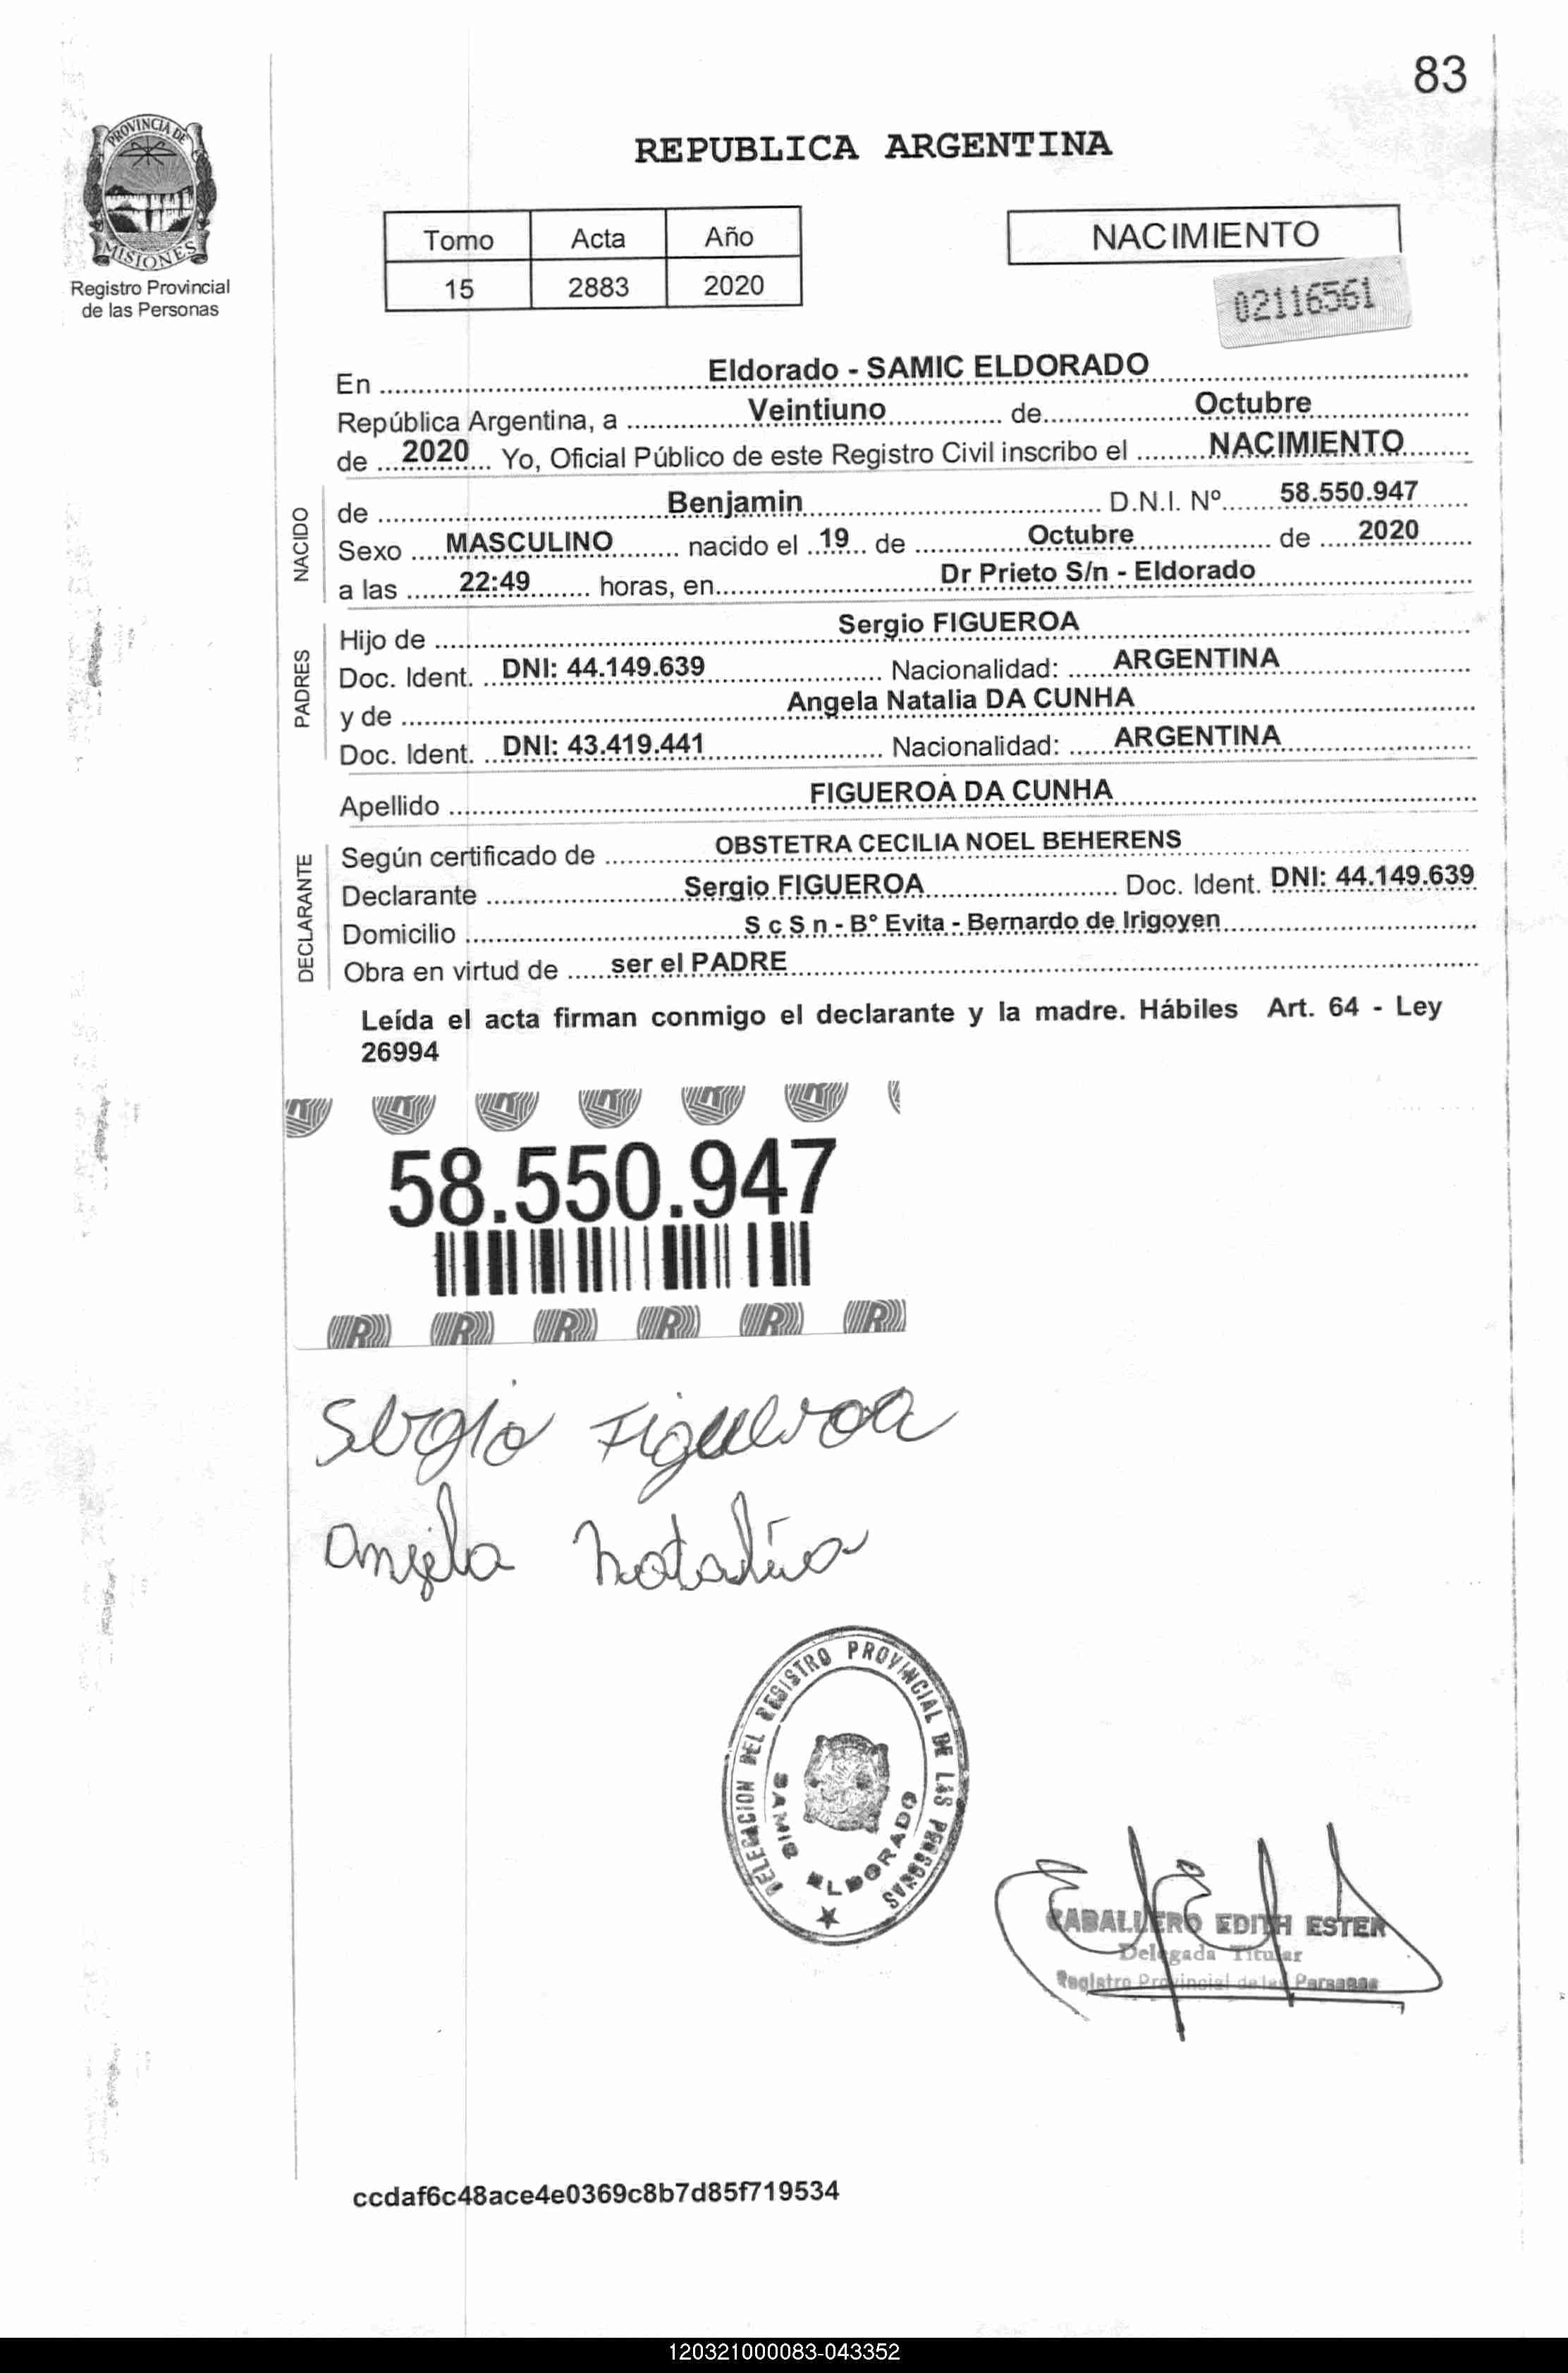 83
PROVINCIA DE
MISIONES
Registro Provincial
de las Personas
REPUBLICA ARGENTINA
Tomo Acta Año
15 2883 2020
NACIMIENTO
02116561
En Eldorado - SAMIC ELDORADO
República Argentina, a Veintiuno de Octubre
de 2020 Yo, Oficial Público de este Registro Civil inscribo el NACIMIENTO
NACIDO
de Benjamin D.N.I. Nº 58.550.947
Sexo MASCULINO nacido el 19 de Octubre de 2020
a las 22:49 horas, en Dr Prieto S/n - Eldorado
PADRES
Hijo de Sergio FIGUEROA
Doc. Ident. DNI: 44.149.639 Nacionalidad: ARGENTINA
y de Angela Natalia DA CUNHA
Doc. Ident. DNI: 43.419.441 Nacionalidad: ARGENTINA
Apellido FIGUEROA DA CUNHA
DECLARANTE
Según certificado de OBSTETRA CECILIA NOEL BEHERENS
Declarante Sergio FIGUEROA Doc. Ident. DNI: 44.149.639
Domicilio S c S n - B° Evita - Bernardo de Irigoyen
Obra en virtud de ser el PADRE
Leída el acta firman conmigo el declarante y la madre. Hábiles Art. 64 - Ley
26994
58.550.947
Sergio Figueroa
Angela Natalia
DELEGACION DEL REGISTRO PROVINCIAL DE LAS PERSONAS
SAMIC ELDORADO
CABALLERO EDITH ESTER
Delegada Titular
Registro Provincial de las Personas
ccdaf6c48ace4e0369c8b7d85f719534
120321000083-043352